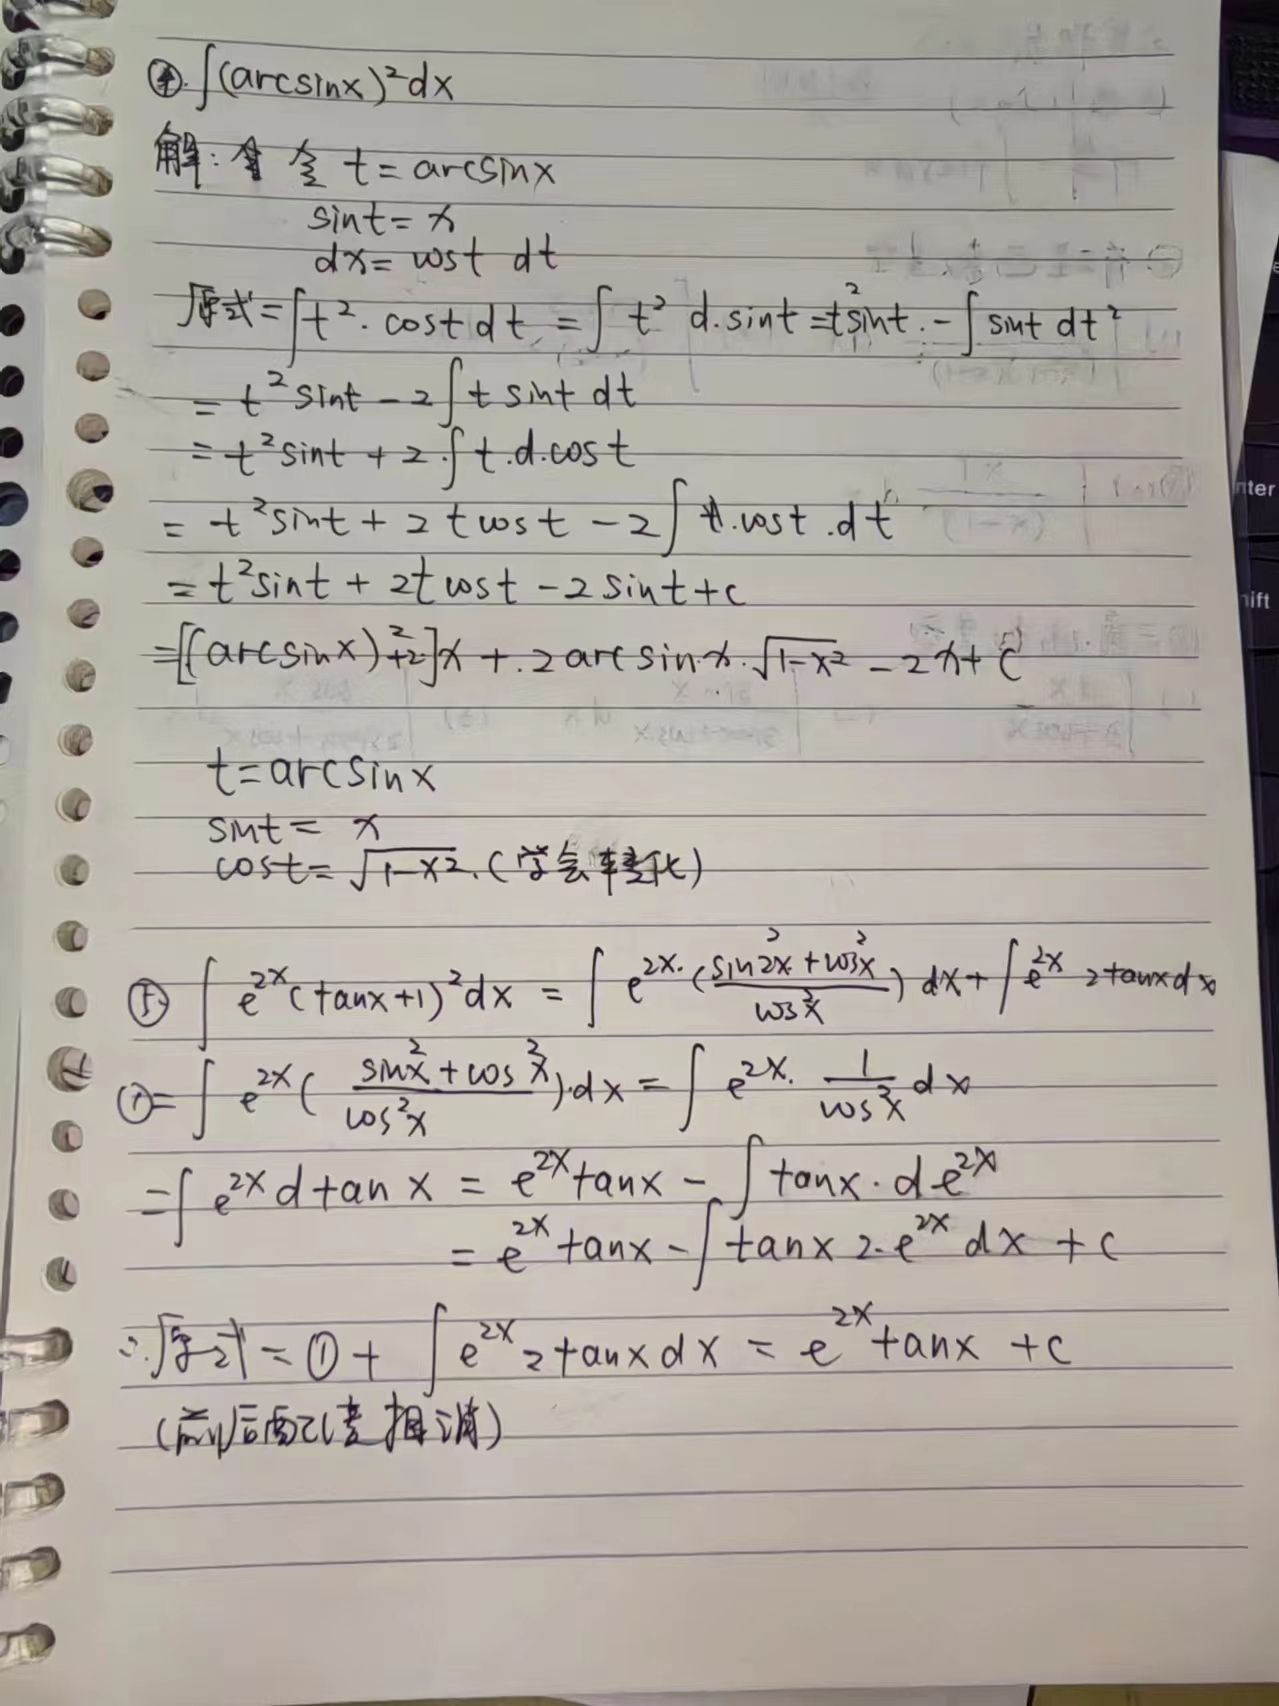 ④. ∫(arcsinx)²dx
解: 令 t = arcsinx
sint = x
dx = cost dt
原式 = ∫t²·cost dt = ∫ t² d·sint = t²sint·-∫ sint dt²
= t²sint - 2∫t sint dt
= t²sint + 2·∫t·d·cost
= t²sint + 2tcost - 2∫cost·dt
= t²sint + 2tcost - 2sint + c
= [(arcsinx)²+2]x + ·2arcsin·x·√1-x² - 2x + C
t = arcsinx
sint = x
cost = √1-x²·(学会转化)
⑤. ∫e^2x(tanx+1)²dx = ∫e^2x·(sin²2x+cos²x/cos²x)dx + ∫e^2x 2tanxdx
① = ∫e^2x(sin²x+cos²x/cos²x)·dx = ∫e^2x·1/cos²x dx
= ∫e^2x dtanx = e^2x tanx - ∫tanx·de^2x
= e^2x tanx - ∫tanx 2·e^2x dx + c
∴原式 = ① + ∫e^2x 2tanxdx = e^2x tanx + c
(前后配凑相消)
nter
hift